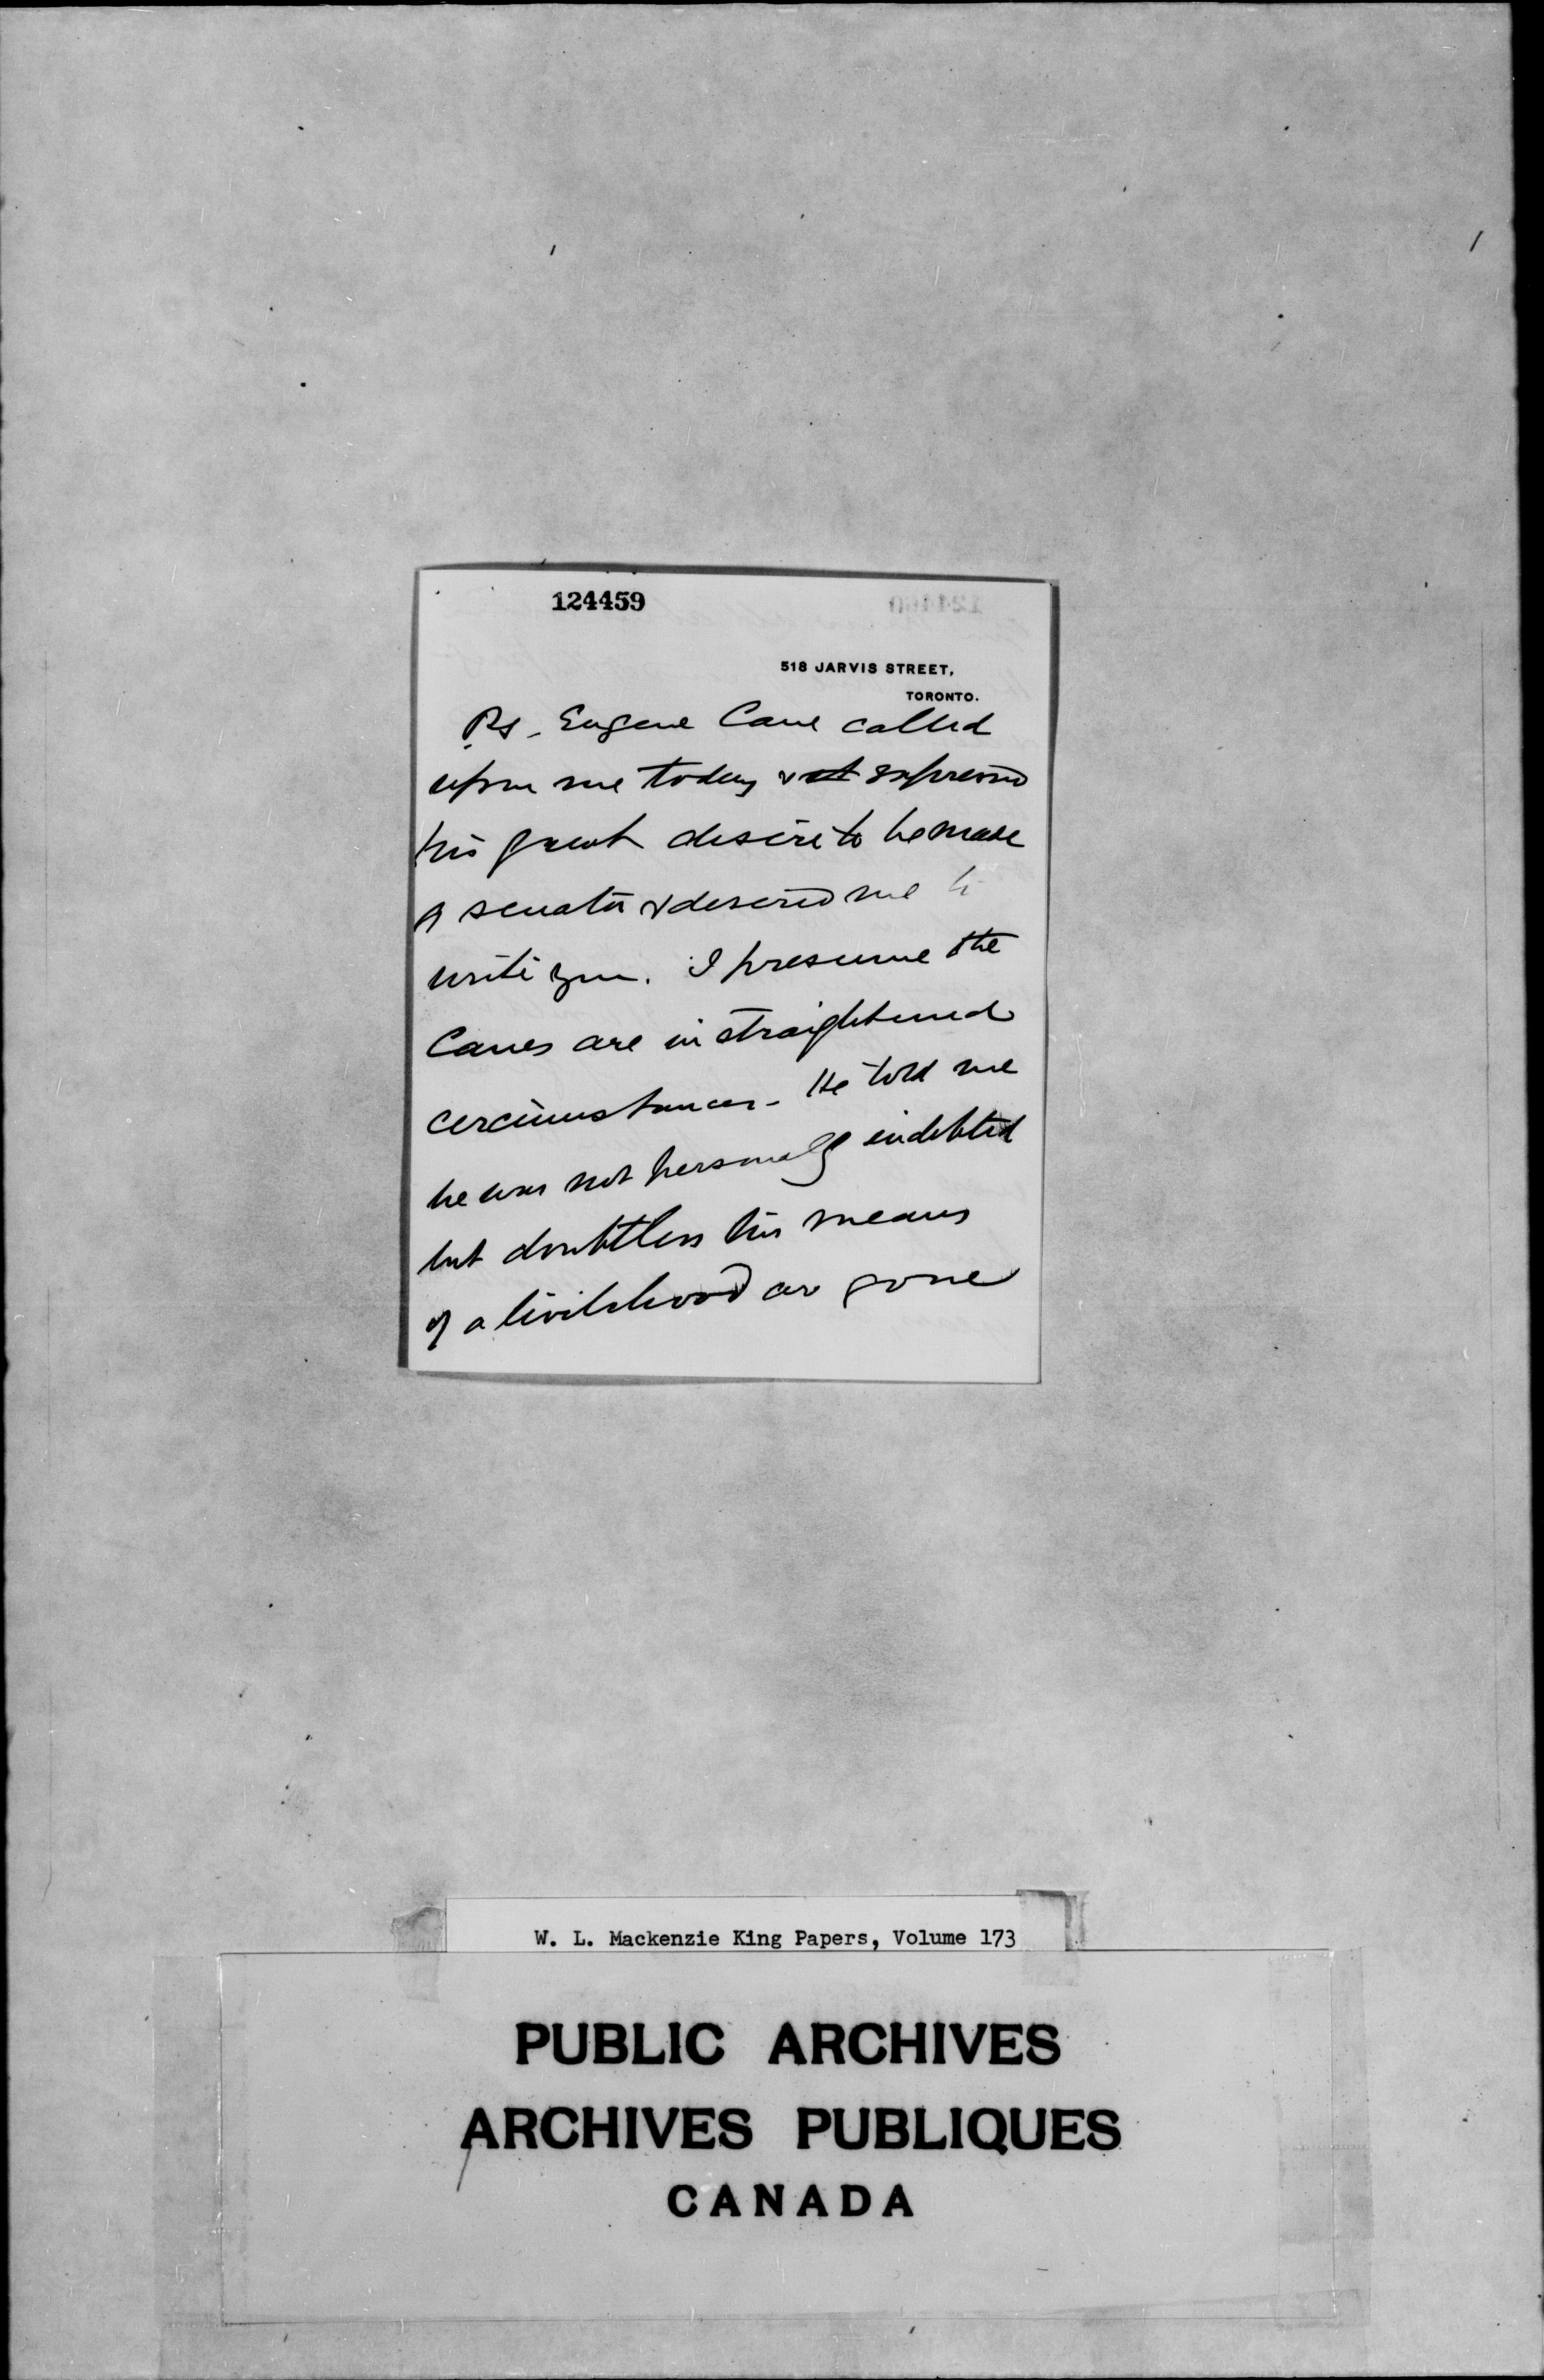 124459
518 JARVIS STREET,
TORONTO.
Ps - Eugene Cane called
upon me today & expressed
his great desire to be made
a senator & desired me to
write you. I presume the
Canes are in straightened
circumstances - He told me
he was not personally indebted
but doubtless his means
of a livelihood are gone
W. L. Mackenzie King Papers, Volume 173
PUBLIC ARCHIVES
ARCHIVES PUBLIQUES
CANADA